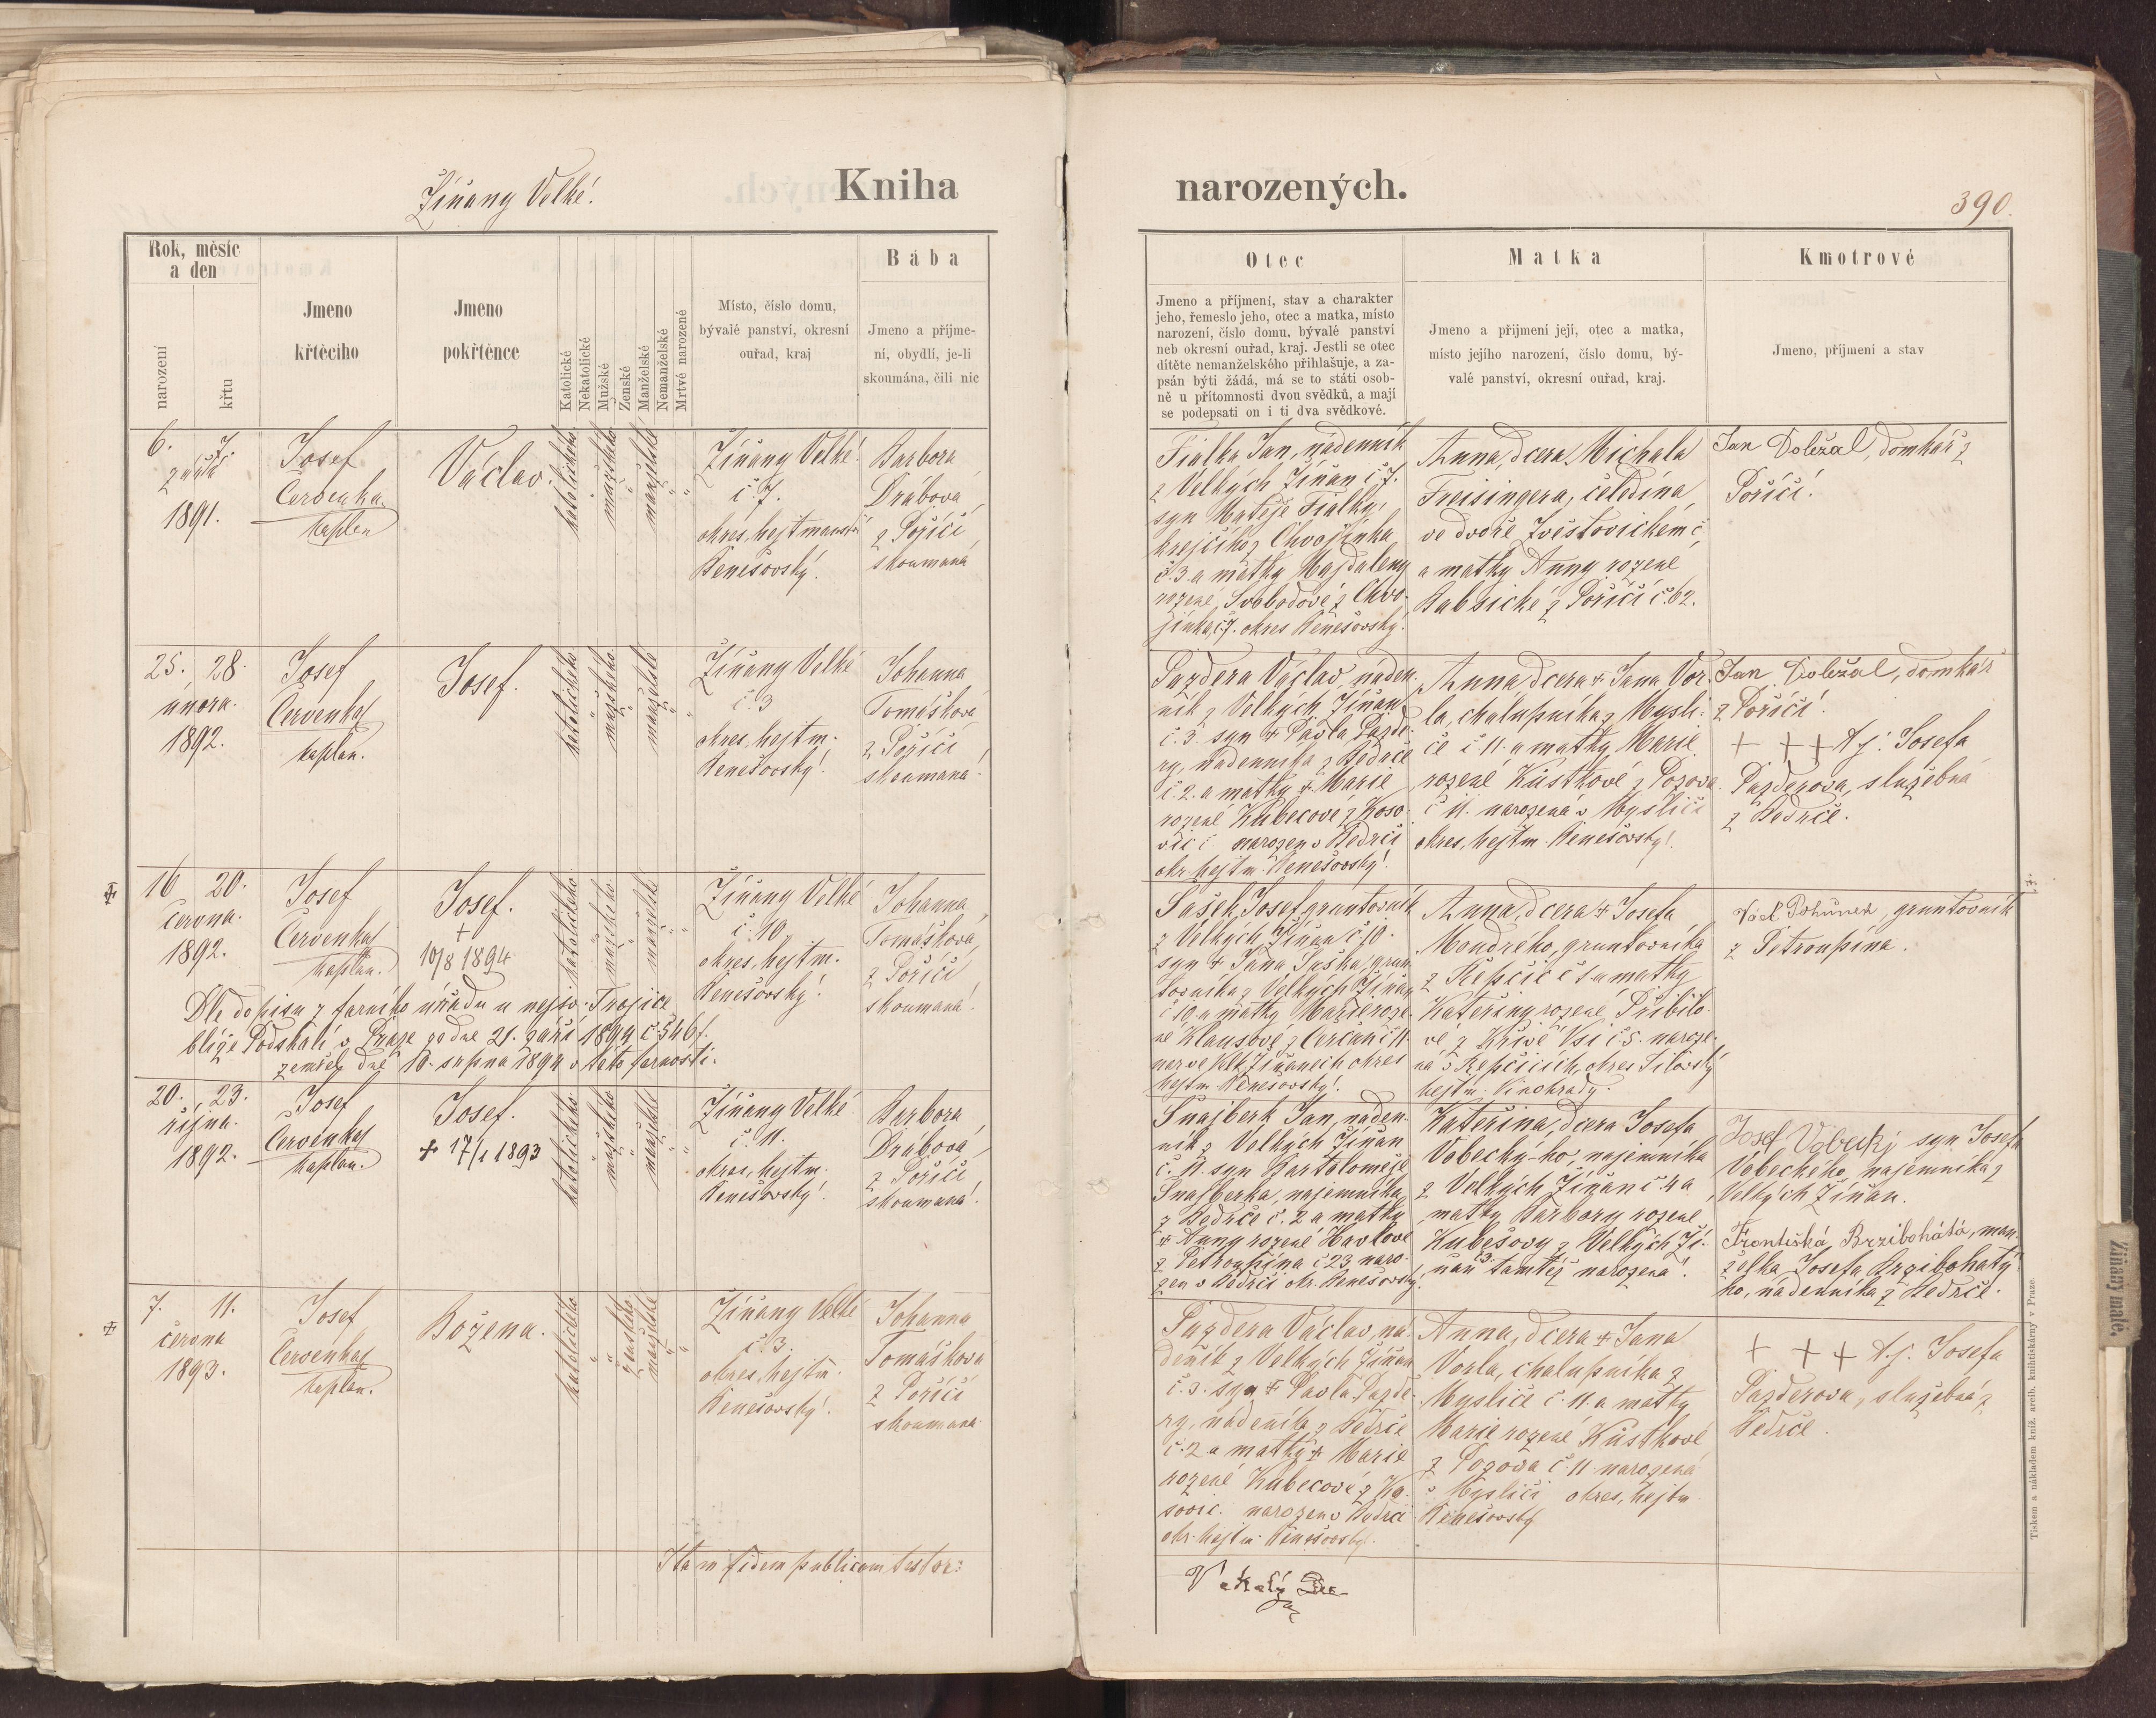 Žíňany Velké.
Kniha
narozených.
390.
Rok, měsíc
a den
narození
křtu
Jmeno
křtěcího
Jmeno
pokřtěnce
Katolické
Nekatolické
Mužské
Ženské
Manželské
Nemanželské
Mrtvé narozené
Místo, číslo domu,
bývalé panství, okresní
ouřad, kraj
Bába
Jmeno a příjme-
ní, obydlí, je-li
skoumána, čili nic
Otec
Jmeno a příjmení, stav a charakter
jeho, řemeslo jeho, otec a matka, místo
narození, číslo domu, bývalé panství
neb okresní ouřad, kraj. Jestli se otec
dítěte nemanželského přihlašuje, a za-
psán býti žádá, má se to státi osob-
ně u přítomnosti dvou svědků, a mají
se podepsati on i ti dva svědkové.
Matka
Jmeno a přijmeni její, otec a matka,
místo jejího narození, číslo domu, bý-
valé panství, okresní ouřad, kraj.
Kmotrové
Jmeno, příjmení a stav
6. 7.
září
1891.
Josef
Červenka
kaplan
Václav.
katolického
mužského
manželské
Žíňany Velké
č. 7.
okres, hejtmanství
Benešovský.
Barbora
Drábová
z Poříčí
skoumaná
Fialka Jan, nádenník
z Velkých Žíňan č. 7.
syn Matěje Fialky,
krejčího z Chvojínka
č. 3. a matky Majdaleny
rozené Svobodové z Chvo-
jínka č. 7. okres Benešovský.
Anna, dcera Michala
Freisingera, čeledína
ve dvoře Zvěstovickém č.
a matky Anny rozené
z Poříčí č. 62.
Jan Doležal, domkář z
Poříčí.
25. 28.
února.
1892.
Josef
Červenka
kaplan.
Josef.
katolického
mužského
manželské
Žíňany Velké
č. 3
okres, hejtm.
Benešovský.
Johanna
Tomášková
z Poříčí
skoumaná.
Pazdera Václav, náden-
ník z Velkých Žíňan
č. 3. syn + Pavla Pazde-
ry, nádenníka z Bedrče
č. 2. a matky + Marie
rozené Kubecové z Koso-
vic č. narozen v Bedrči
okr. hejtm. Benešovský.
Anna dcera + Jana Vor-
la, chalupníka z Mysli-
če č. 11. a matky Marie
rozené Kůstkové z Pozova
č. 11. narozená v Mysliči
okres, hejtm. Benešovský.
Jan Doležal, domkář
z Poříčí.
+ + + t. j. Josefa
Pazderova, služebná
z Bedrče.
16 20.
června.
1892.
Josef
Červenka
kaplan.
Josef.
+
10/8 1894
katolického
mužského
manželské
Žíňany Velké
č. 10.
okres, hejtm.
Benešovský.
Johanna
Tomášková
z Poříčí
skoumaná.
Dle dopisu z farního úřadu u nejsv. Trojice
blíže Podskalí v Praze ze dne 21. září 1894 č 546 f.
zemřel dne 10. srpna 1894 v této farnosti.
Šašek, Josef, gruntovník
z Velkých Žíňan č. 10.
syn + Jana Šaška, grun-
tovníka z Velkých Žíňan
č 10. a matky Marie roze-
né Klausové z Čerčan č 11.
nar. ve Velk. Žíňanech okres
hejtm. Benešovský.
Anna, dcera + Josefa
Moudrého, gruntovníka
z Řepčic č 1 a matky
Kateřiny rozené Přibilo-
vé z Křivé Vsi č. 5. naroze-
ná v Řepčicích, okres Jílovský
hejtm. Vinohrady.
Václ Pohunek, gruntovník
z Petroupína.
20. 23.
října.
1892.
Josef
Červenka
kaplan.
Josef.
+ 17/1 1893
katolického
mužského
manželské
Žíňany Velké
č. 11.
okres, hejtm.
Benešovský.
Barbora
Drábová
z Poříčí
skoumaná.
Šnajberk Jan, náden-
ník z Velkých Žíňan
č. 11. syn Bartoloměje
Šnajberka, nájemníka
z Bedrče č. 2 a matky
+ Anny rozené Havlové
z Petroupína č 23. naro-
zen v Bedrči okr. Benešovský.
Kateřina, dcera Josefa
Vobecký-ho, nájemníka
z Velkých Žíňan č 4 a
matky Barbory rozené
Kubešovy z Velkých Ží-
ňan č 3. tamtéž narozená.
Josef Vobecký syn Josefa
Vobeckého, nájemníka z
Velkých Žíňan.
Františka Brzibohatá, man-
želka Josefa Brzibohatý-
ho, nádenníka z Bedrče.
7. 11.
června
1893.
Josef
Červenka
kaplan.
Božena.
katolického
ženského
manželské
Žíňany Velké
č. 3.
okres, hejtm.
Benešovský.
Johanna
Tomáškova
z Poříčí
skoumaná.
Pazdera Václav, ná-
deník z Velkých Žíňan
č. 3. syn + Pavla Pazde-
ry, nádeníka z Bedrče
č. 2 a matky + Marie
rozené Kubecové z Ko-
sovic. narozen v Bedrči
okr. hejtm. Benešovský.
Anna, dcera + Jana
Vorla, chalupníka z
Mysliče č. 11. a matky
Marie rozené Kůstkové
z Pozova č. 11. narozená
v Mysliči okres, hejtm.
Benešovský
+ + + t. j. Josefa
Pazderova, služebná z
Bedrče.
Ita in fidem publicam testor:
Tiskem a nákladem kníž. arcib. knihtiskárny v Praze.
Žíňany malé.